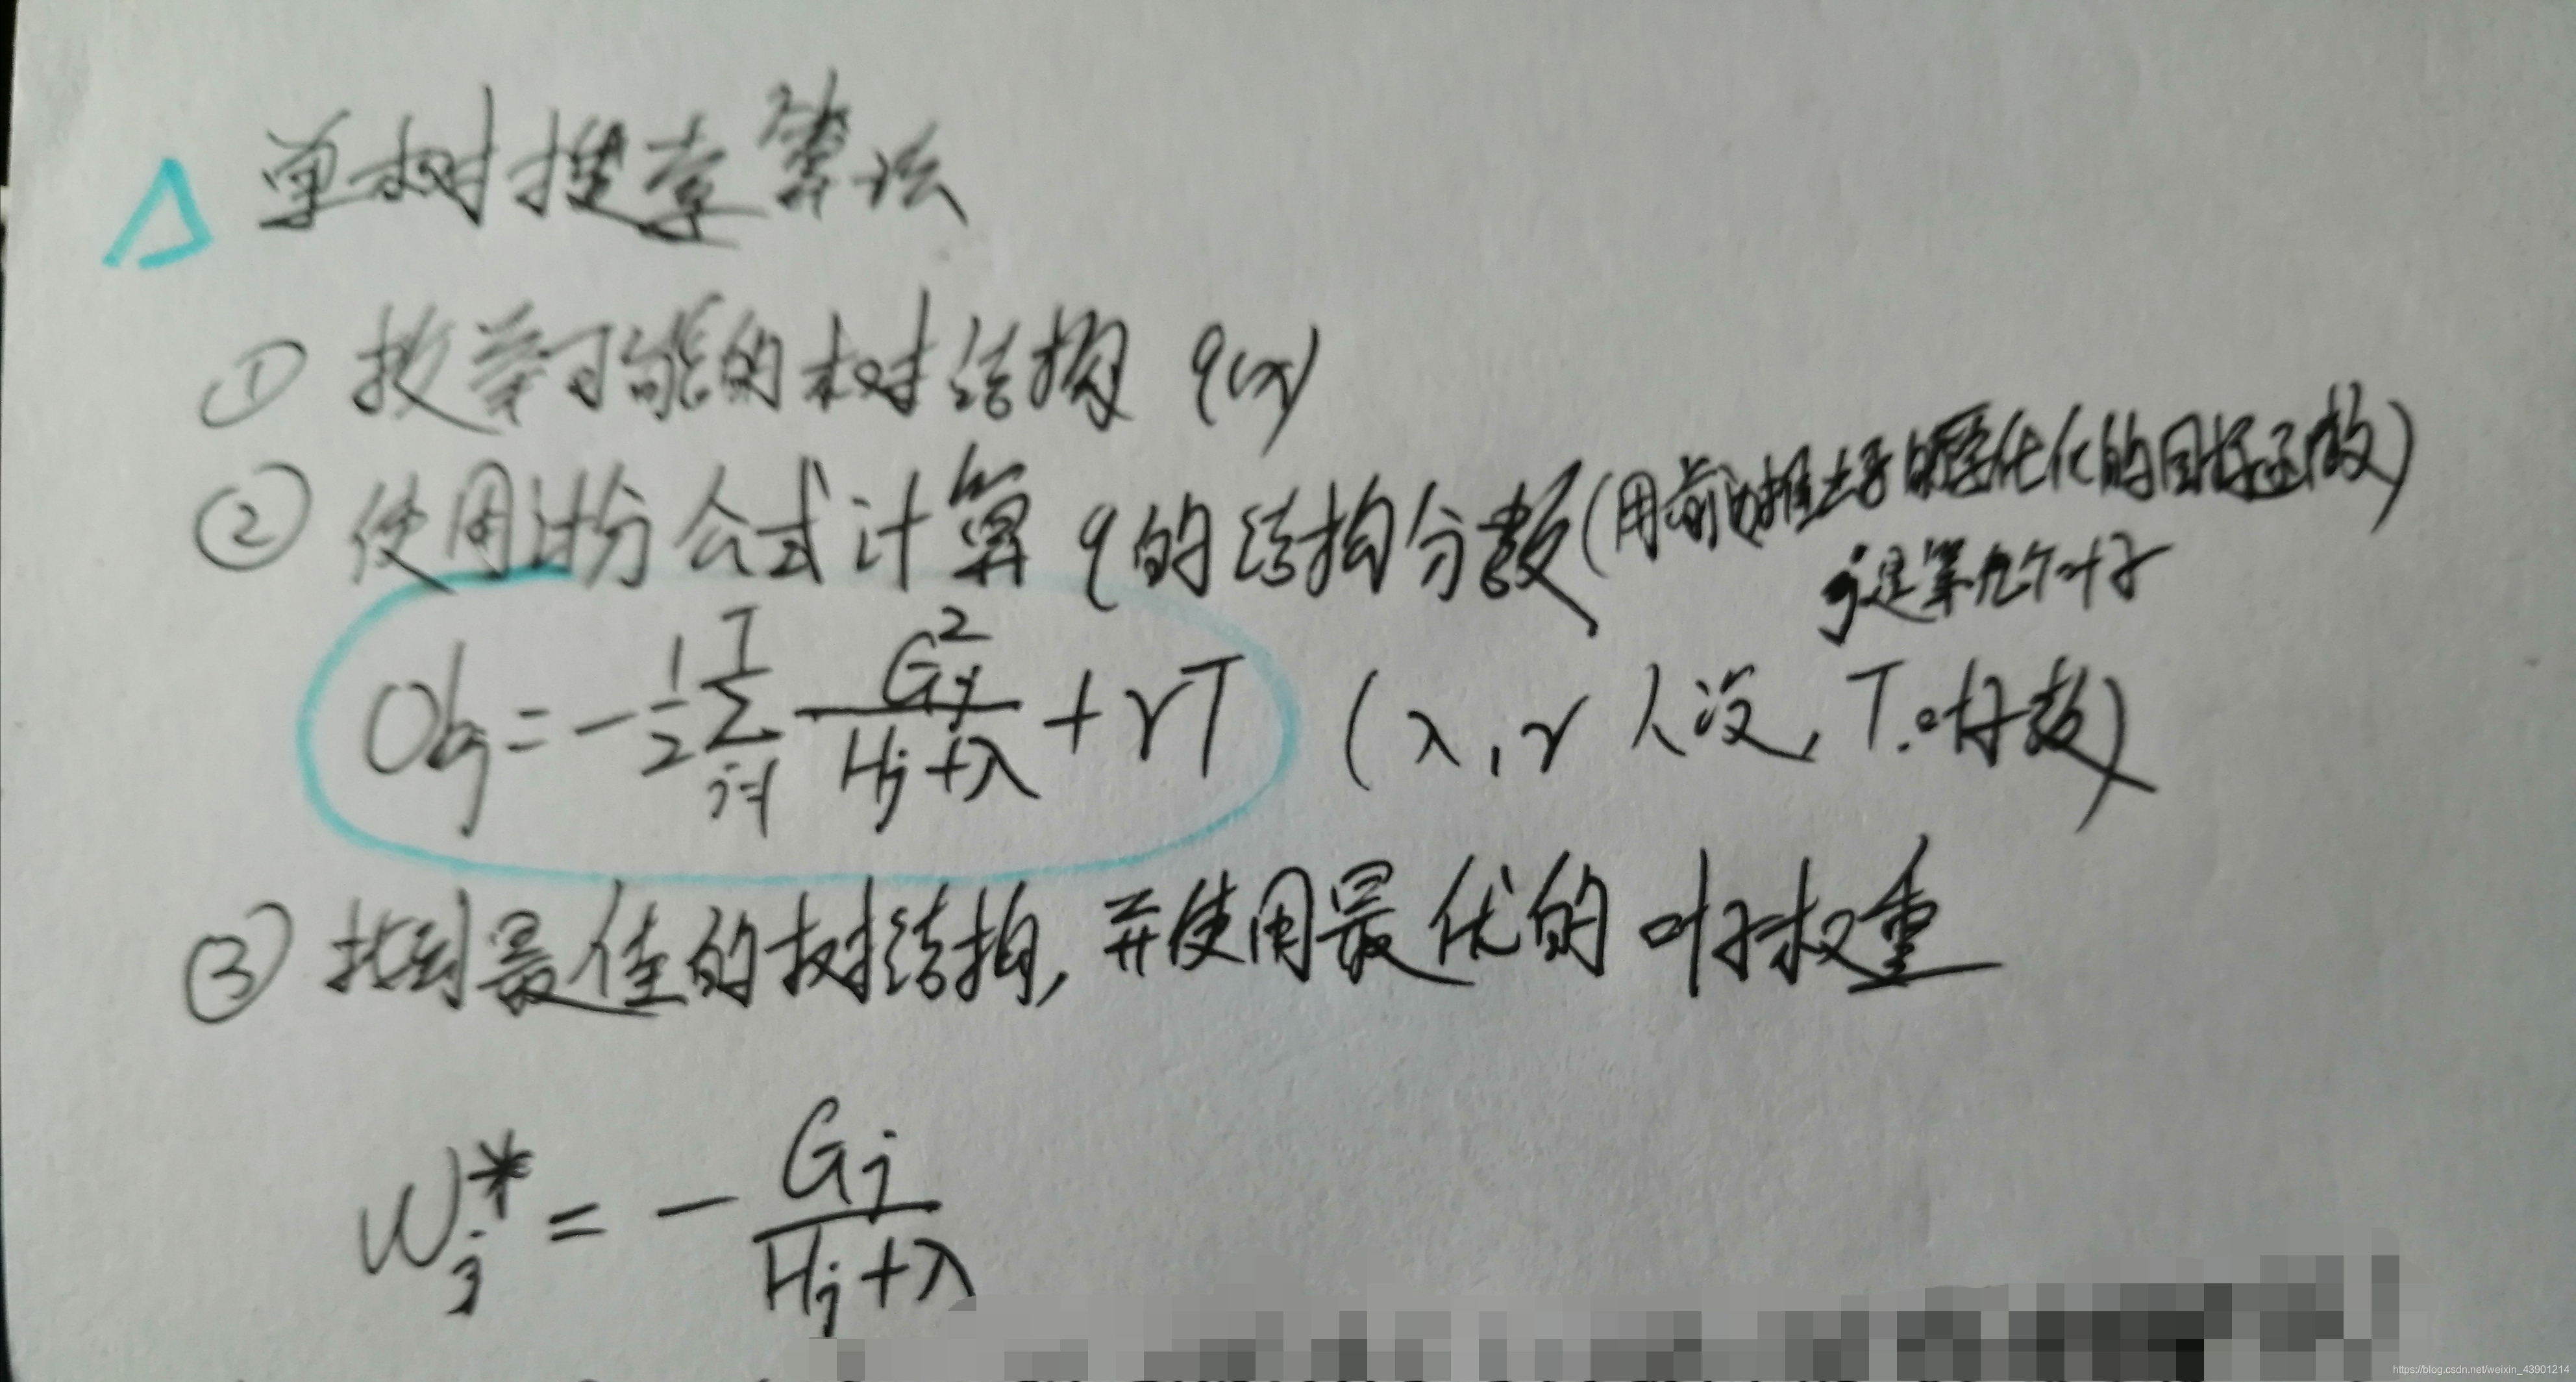 △ 单树搜索算法
① 枚举可能的树结构 q(x)
② 使用计分公式计算 q的结构分数(用前边推出来的化的目标函数)
j是第几个叶子
Obj = -1/2 Σ_{j=1}^{T} G_j^2/(H_j+λ) + γT (λ,γ人设,T.叶子数)
③ 找到最佳的树结构,并使用最优的 叶子权重
W_j^* = - G_j/(H_j+λ)
https://blog.csdn.net/weixin_43901214